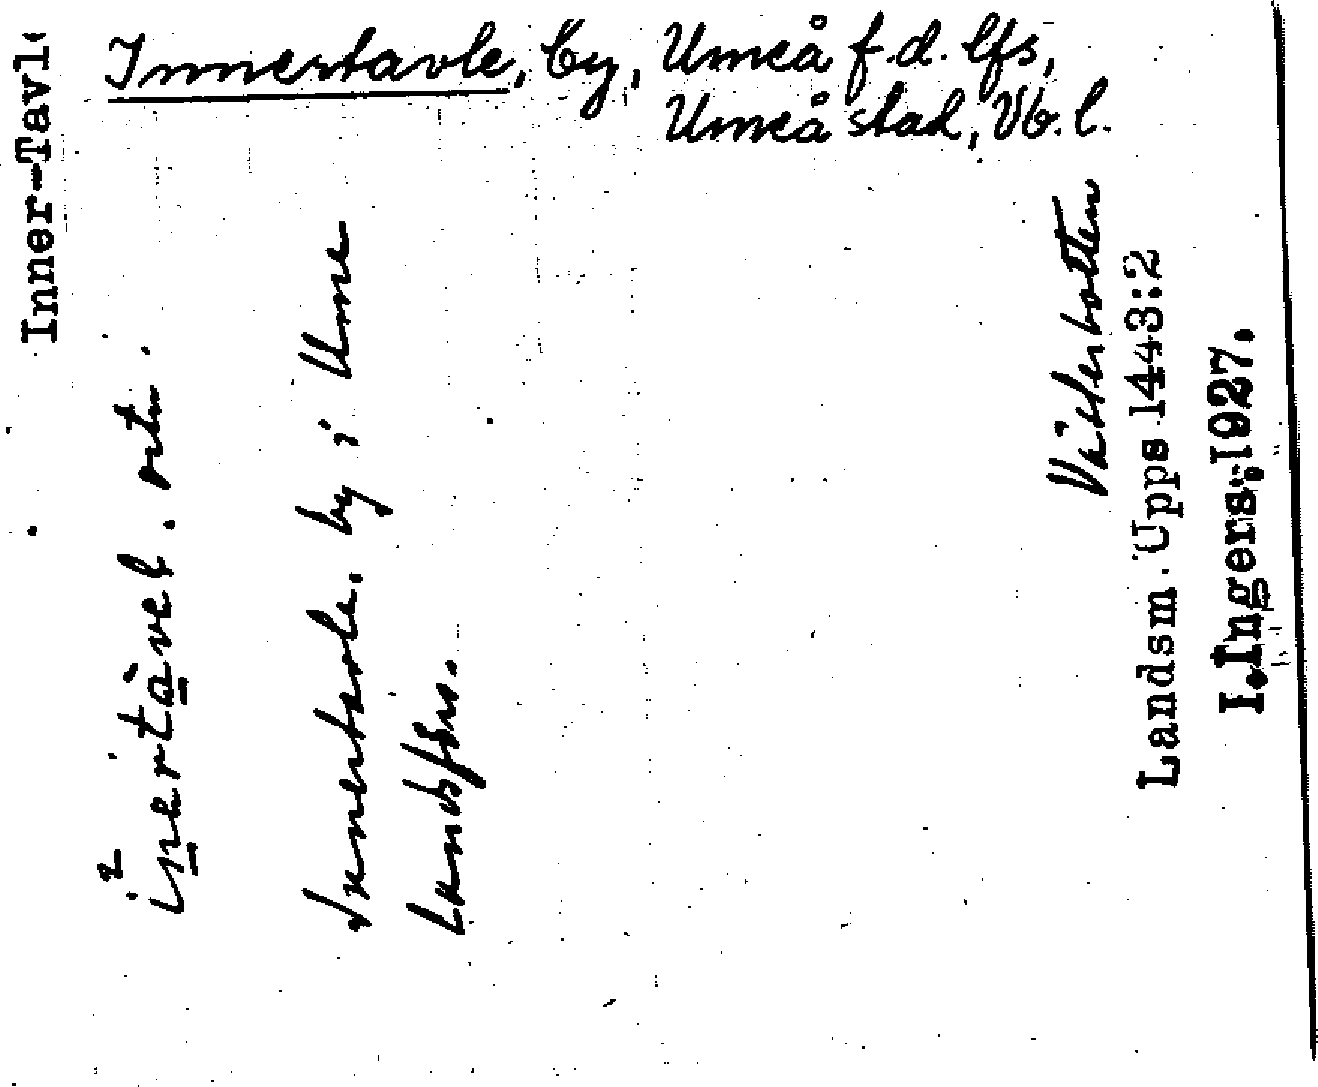 Innertavle, by, Umeå f.d. lfs,
Umeå stad, Vb. l.
Inner-Tavl
Innertavle. by i Ume
landsförs.
Västerbotten
Landsm. Upps 1443:2
I. Ingers, 1927.